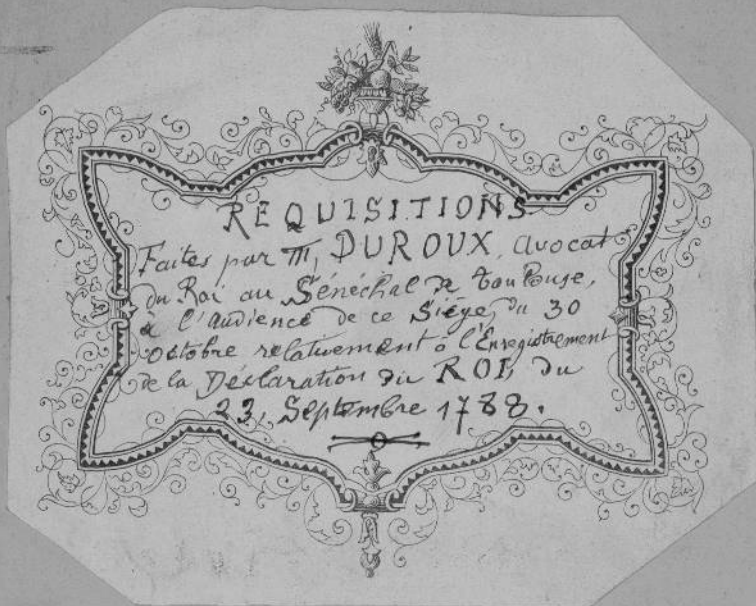 REQUISITIONS
Faites par M, DUROUX, avocat
du Roi au Sénéchal de touLouse,
à l'audience de ce Siége, du 30
octobre relativement à l'Enregistrement
de la Déclaration du ROI, du
23, Septembre 1788.